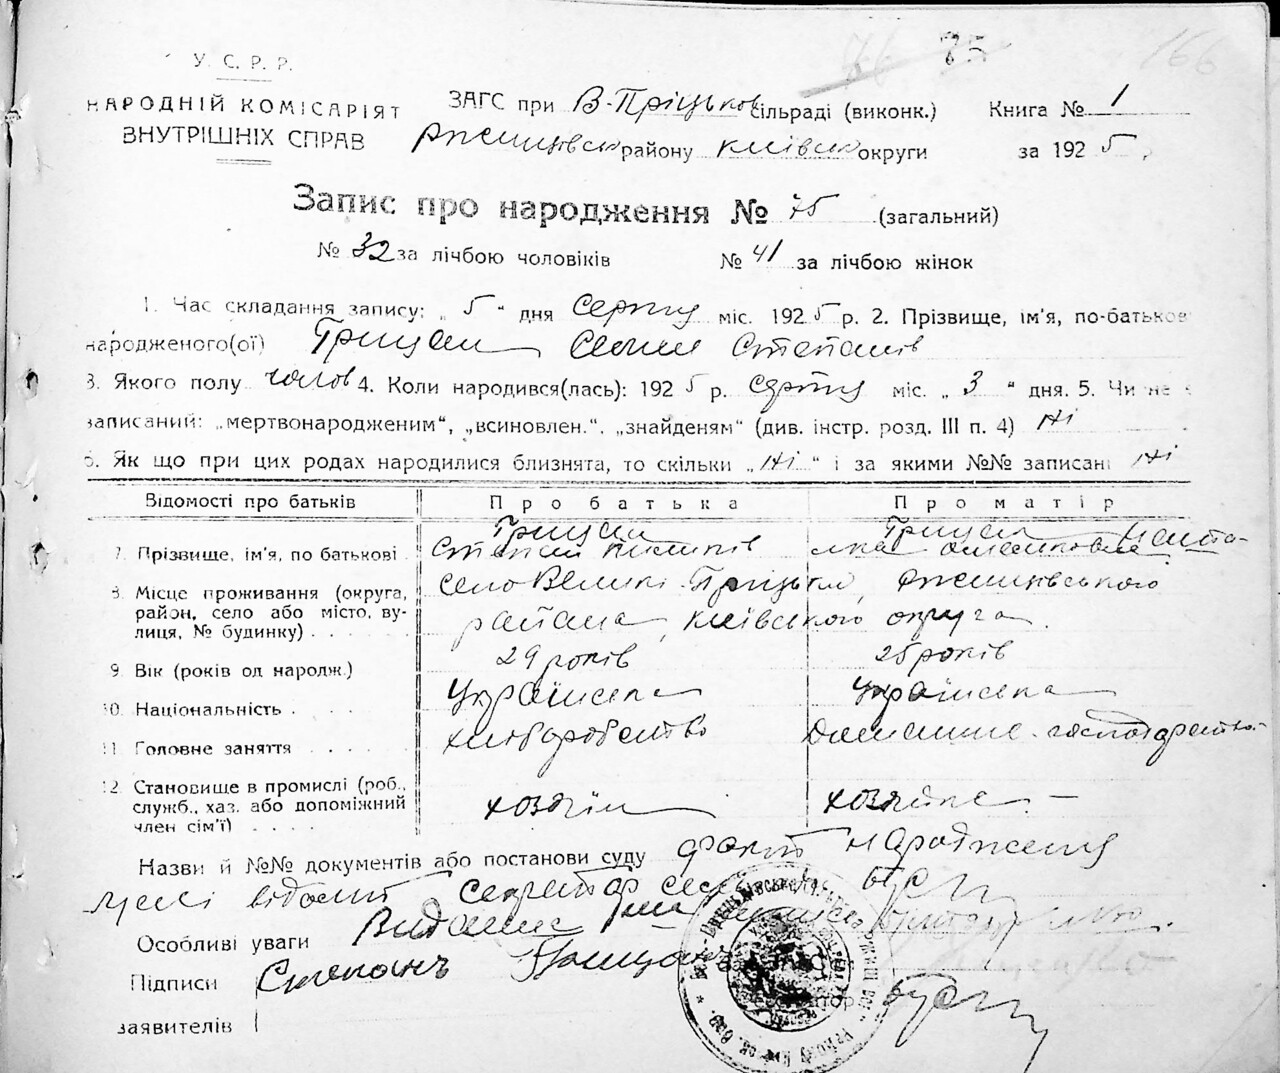 75
166
У. С. Р. Р.
НАРОДНІЙ КОМІСАРІЯТ
ВНУТРІШНІХ СПРАВ
ЗАГС при В-Пріцьков сільраді (виконк.) Книга № 1
Ржищівськ району київськ округи за 1925
Запис про народження № 75 (загальний)
№ 32 за лічбою чоловіків № 41 за лічбою жінок
1. Час складання запису: „ 5 “ дня серпня міс. 1925 р. 2. Прізвище, ім'я, по-батькові
народженого(ої) Грицан Степанів
3. Якого полу чолов 4. Коли народився(лась): 1925 р. серпня міс. „ 3 “ дня. 5. Чи не
записаний: „мертвонародженим“, „всиновлен.“, „знайденям“ (див. інстр. розд. III п. 4) Ні
6. Як що при цих родах народилися близнята, то скільки „ Ні “ і за якими №№ записані Ні
Відомості про батьків Про батька Про матір
7. Прізвище, ім'я, по батькові Грицан Степан Пилипів Грицан
8. Місце проживання (округа, район, село або місто, вулиця, № будинку) село Великі Пріцьки, Ржищівського
района, київського округа.
9. Вік (років од народж.) 29 років 25 років
10. Національність Українська Українська
11. Головне заняття хліборобство Домашнє господарство
12. Становище в промислі (роб., служб., хаз. або допоміжний член сім'ї) хозяїн хозяйка
Назви й №№ документів або постанови суду факт народження
мені відомий Секретар
Особливі уваги Видана
Підписи Степанъ Грицанъ
заявителів